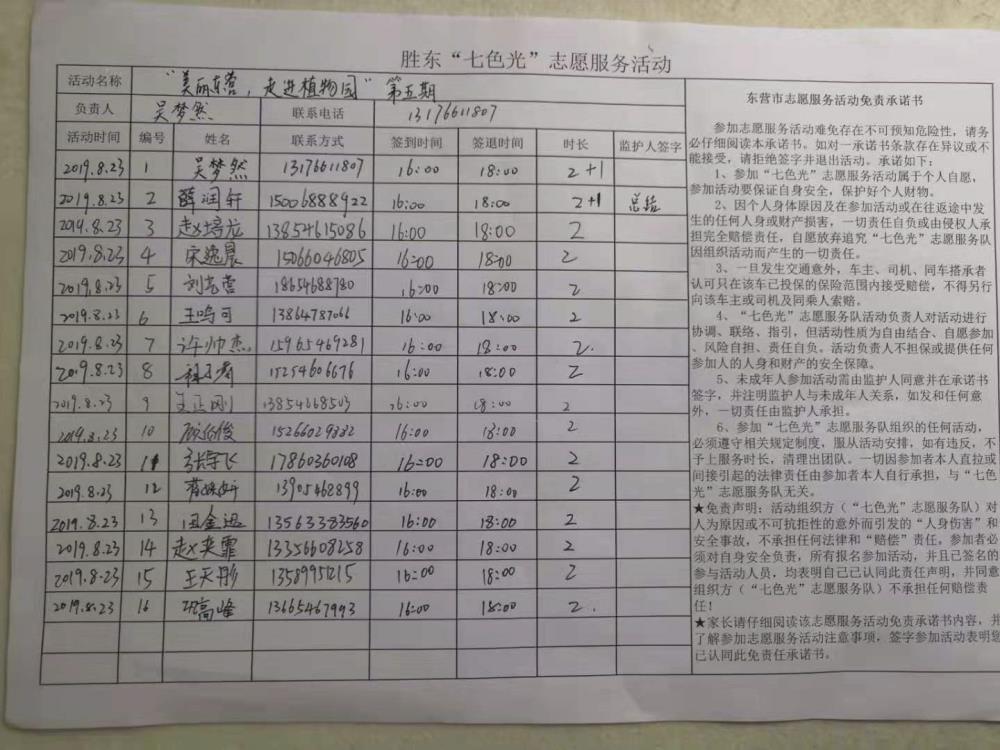 胜东“七色光”志愿服务活动
活动名称 “美丽东营，走进植物园”第五期
负责人 吴梦然 联系电话 13176611807
活动时间 编号 姓名 联系方式 签到时间 签退时间 时长 监护人签字
2019.8.23 1 吴梦然 13176611807 16:00 18:00 2+1
2019.8.23 2 薛润轩 15006888922 16:00 18:00 2+1 总结
2019.8.23 3 赵培龙 13854615086 16:00 18:00 2
2019.8.23 4 宋逸晨 15066046805 16:00 18:00 2
2019.8.23 5 18654688780 16:00 18:00 2
2019.8.23 6 王鸣可 13864787066 16:00 18:00 2
2019.8.23 7 许帅杰 15965469281 16:00 18:00 2.
2019.8.23 8 15254606676 16:00 18:00 2
2019.8.23 9 王正刚 13854668503 16:00 18:00 2
2019.8.23 10 顾伯俊 15266029882 16:00 18:00 2
2019.8.23 11 张学飞 17860360108 16:00 18:00 2
2019.8.23 12 13905468899 16:00 18:00 2
2019.8.23 13 13563383560 16:00 18:00 2
2019.8.23 14 赵奕霏 13356608258 16:00 18:00 2
2019.8.23 15 王天彤 13589951215 16:00 18:00 2
2019.8.23 16 高峰 13665467993 16:00 18:00 2.
东营市志愿服务活动免责承诺书
参加志愿服务活动难免存在不可预知危险性，请务
必仔细阅读本承诺书。如对一承诺书条款存在异议或不
能接受，请拒绝签字并退出活动。承诺如下：
1、参加“七色光”志愿服务活动属于个人自愿，
参加活动要保证自身安全，保护好个人财物。
2、因个人身体原因及在参加活动或在往返途中发
生的任何人身或财产损害，一切责任自负或由侵权人承
担完全赔偿责任，自愿放弃追究“七色光”志愿服务队
因组织活动而产生的一切责任。
3、一旦发生交通意外，车主、司机、同车搭承者
认可只在该车已投保的保险范围内接受赔偿，不得另行
向该车主或司机及同乘人索赔。
4、“七色光”志愿服务队活动负责人对活动进行
协调、联络、指引，但活动性质为自由结合、自愿参加
、风险自担、责任自负。活动负责人不担保或提供任何
参加人的人身和财产的安全保障。
5、未成年人参加活动需由监护人同意并在承诺书
签字，并注明监护人与未成年人关系，如发和任何意
外，一切责任由监护人承担。
6、参加“七色光”志愿服务队组织的任何活动，
必须遵守相关规定制度，服从活动安排，如有违反，不
予上服务时长，清理出团队。一切因参加者本人直拉或
间接引起的法律责任由参加者本人自行承担，与“七色
光”志愿服务队无关。
★免责声明：活动组织方（“七色光”志愿服务队）对
人为原因或不可抗拒性的意外而引发的“人身伤害”和
安全事故，不承担任何法律和“赔偿”责任。参加者必
须对自身安全负责，所有报名参加活动，并且已签名的
参与活动人员，均表明自己已认同此责任声明，并同意
组织方（“七色光”志愿服务队）不承担任何赔偿责
任！
★家长请仔细阅读该志愿服务活动免责承诺书内容，并
了解参加志愿服务活动注意事项，签字参加活动表明您
已认同此免责任承诺书。